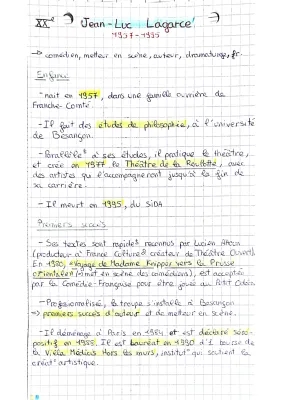 XXe Jean-Luc Lagarce
1957-1995
→ comédien, metteur en scène, auteur, dramaturge, fr.
Enfance
- nait en 1957, dans une famille ouvrière de
Franche-Comté.
- Il fait des études de philosophie, à l'université
de Besançon.
- Parallèlt à ses études, il pratique le théâtre,
et crée en 1977 le Théâtre de la Roulotte, avec
des artistes qui l'accompagneront jusqu'à la fin de
sa carrière.
- Il meurt en 1995, du SIDA
Premiers succès
- Ses textes sont rapidt reconnus par Lucien Attoun
(producteur à France Culture & créateur de Théâtre Ouvert).
En 1980, «Voyage de Madame Knipper vers la Prusse
orientale» (met en scène des comédiens), est accepté
par la Comédie-Française pour être joué au Petit Odéon.
- Professionnalisé, la troupe s'installe à Besançon
→ premiers succès d'auteur et de metteur en scène.
- Il déménage à Paris en 1984 et est déclaré séro-
positif en 1988. Il est lauréat en 1990 d'1 bourse de
la Villa Médicis Hors les murs, institutº qui soutient la
créatº artistique.